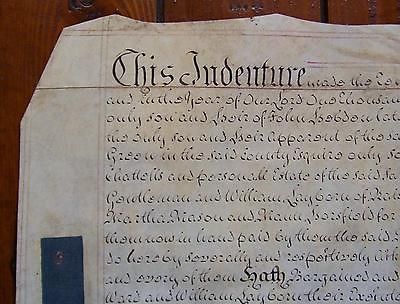 This Indenture made the
and in the Year of Our Lord One thousand
only son and Heir of John Hobson late
the only son and Heir apparent of the said
Green in the said County Esquire only so
Chattels and personal Estate of the said
Gentleman and William Layborn of
Martha Mason and Mann Horsfield for
them now in hand paid by them the said
do hereby severally and respectively
and every of them Hath Bargained and
Ward and William Layborn their